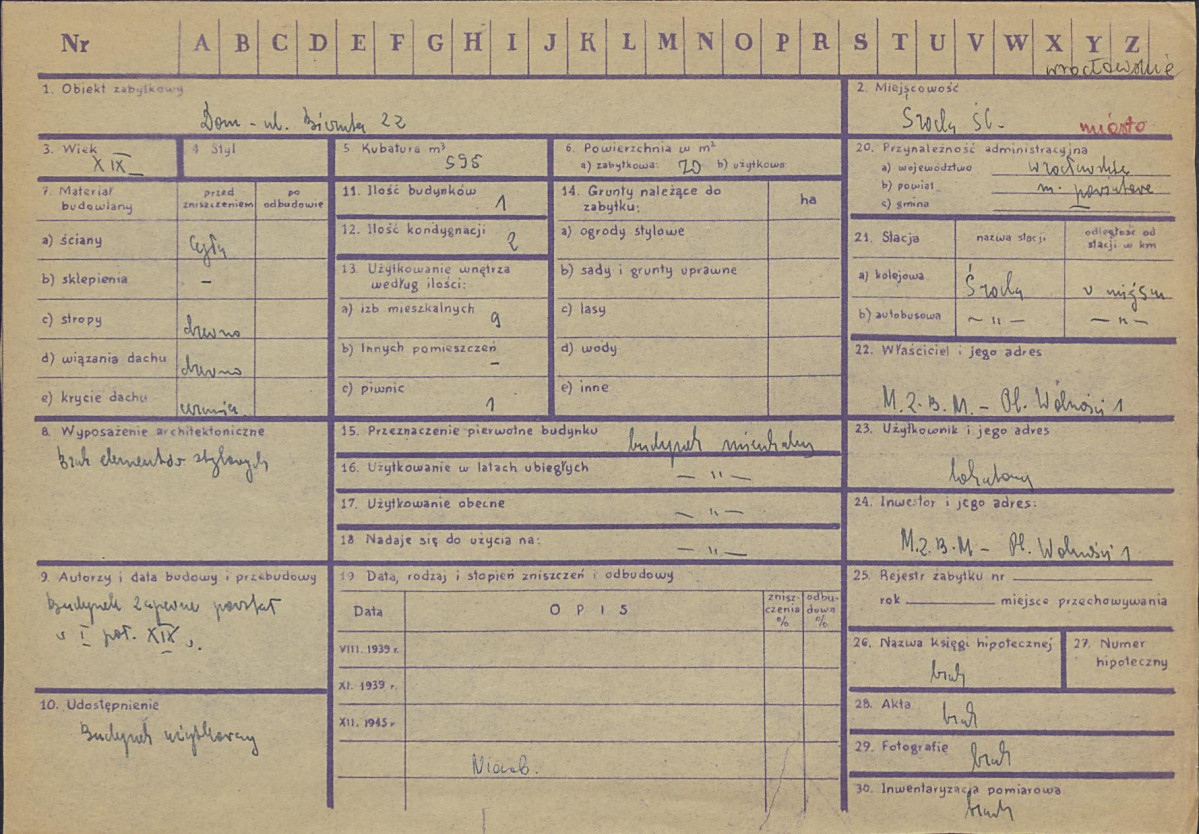 Nr A B C D E F G H I J K L M N O P R S T U V W X Y Z
wrocławskie
1. Obiekt zabytkowy
Dom - ul. Bieruta 22
2. Miejscowość
Środa Śl. miasto
3. Wiek
XIX
4 Styl
5 Kubatura m³
595
6. Powierzchnia w m²
a) zabytkowa: 70 b) użytkowa
20. Przynależność administracyjna
a) województwo wrocławskie
b) powiat m. powiatowe
c) gmina
7. Materiał budowlany
przed zniszczeniem
po odbudowie
a) ściany cegła
b) sklepienia -
c) stropy drewno
d) wiązania dachu drewno
e) krycie dachu
11. Ilość budynków
1
12. Ilość kondygnacji
2
13. Użytkowanie wnętrza według ilości:
a) izb mieszkalnych 9
b) Innych pomieszczeń -
c) piwnic 1
14. Grunty należące do zabytku:
ha
a) ogrody stylowe
b) sady i grunty uprawne
c) lasy
d) wody
e) inne
21. Stacja
nazwa stacji
odległość od stacji w km
a) kolejowa Środa w miejscu
b) autobusowa - " - - " -
22. Właściciel i jego adres
M.Z.B.M. - Pl. Wolności 1
8. Wyposażenie architektoniczne
Brak elementów stylowych
15. Przeznaczenie pierwotne budynku budynek mieszkalny
16. Użytkowanie w latach ubiegłych - " -
17. Użytkowanie obecne - " -
18 Nadaje się do użycia na: - " -
23. Użytkownik i jego adres
lokatorzy
24. Inwestor i jego adres:
M.Z.B.M - Pl. Wolności 1
9. Autorzy i data budowy i przebudowy
Budynek zapewne powstał
w I poł. XIX w.
10. Udostępnienie
Budynek użytkowany
19 Data, rodzaj i stopień zniszczeń i odbudowy
Data
OPIS
znisz-czenia %
odbu-dowa %
VIII. 1939 r.
XI. 1939 r.
XII. 1945 r
25. Rejestr zabytku nr
rok miejsce przechowywania
26. Nazwa księgi hipotecznej
brak
27. Numer hipoteczny
28. Akta brak
29. Fotografie brak
30. Inwentaryzacja pomiarowa
brak